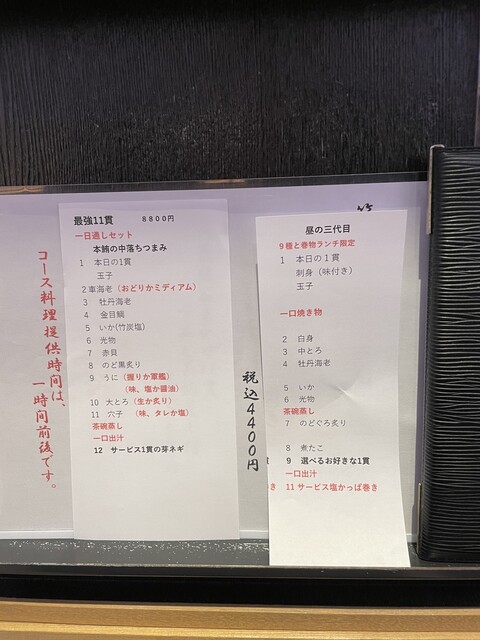 コース料理提供時間は、
一時間前後です。
最強11貫 8800円
一日通しセット
本鮪の中落ちつまみ
1 本日の1貫
玉子
2 車海老(おどりかミディアム)
3 牡丹海老
4 金目鯛
5 いか(竹炭塩)
6 光物
7 赤貝
8 のど黒炙り
9 うに(握りか軍艦)
(味、塩か醤油)
10 大とろ(生か炙り)
11 穴子 (味、タレか塩)
茶碗蒸し
一口出汁
12 サービス1貫の芽ネギ
税込4400円
昼の三代目
9種と巻物ランチ限定
1 本日の1貫
刺身(味付き)
玉子
一口焼き物
2 白身
3 中とろ
4 牡丹海老
5 いか
6 光物
茶碗蒸し
7 のどぐろ炙り
8 煮たこ
9 選べるお好きな1貫
一口出汁
11 サービス塩かっぱ巻き